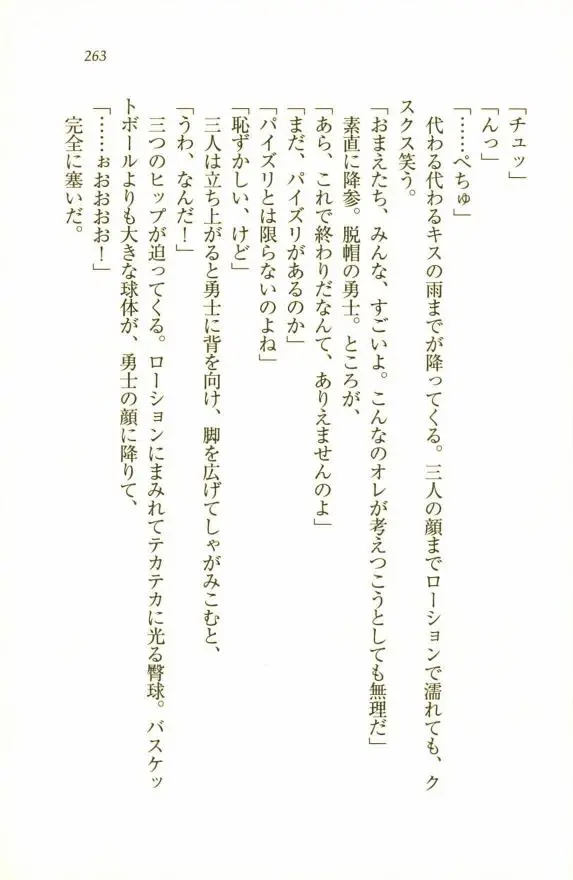 263
「チュッ」
「んっ」
「……ぺちゅ」
　代わる代わるキスの雨までが降ってくる。三人の顔までローションで濡れても、ク
スクス笑う。
「おまえたち、みんな、すごいよ。こんなのオレが考えつこうとしても無理だ」
　素直に降参。脱帽の勇士。ところが、
「あら、これで終わりだなんて、ありえませんのよ」
「まだ、パイズリがあるのか」
「パイズリとは限らないのよね」
「恥ずかしい、けど」
　三人は立ち上がると勇士に背を向け、脚を広げてしゃがみこむと、
「うわ、なんだ！」
　三つのヒップが迫ってくる。ローションにまみれてテカテカに光る臀球。バスケッ
トボールよりも大きな球体が、勇士の顔に降りて、
「……ぉおおおお！」
　完全に塞いだ。